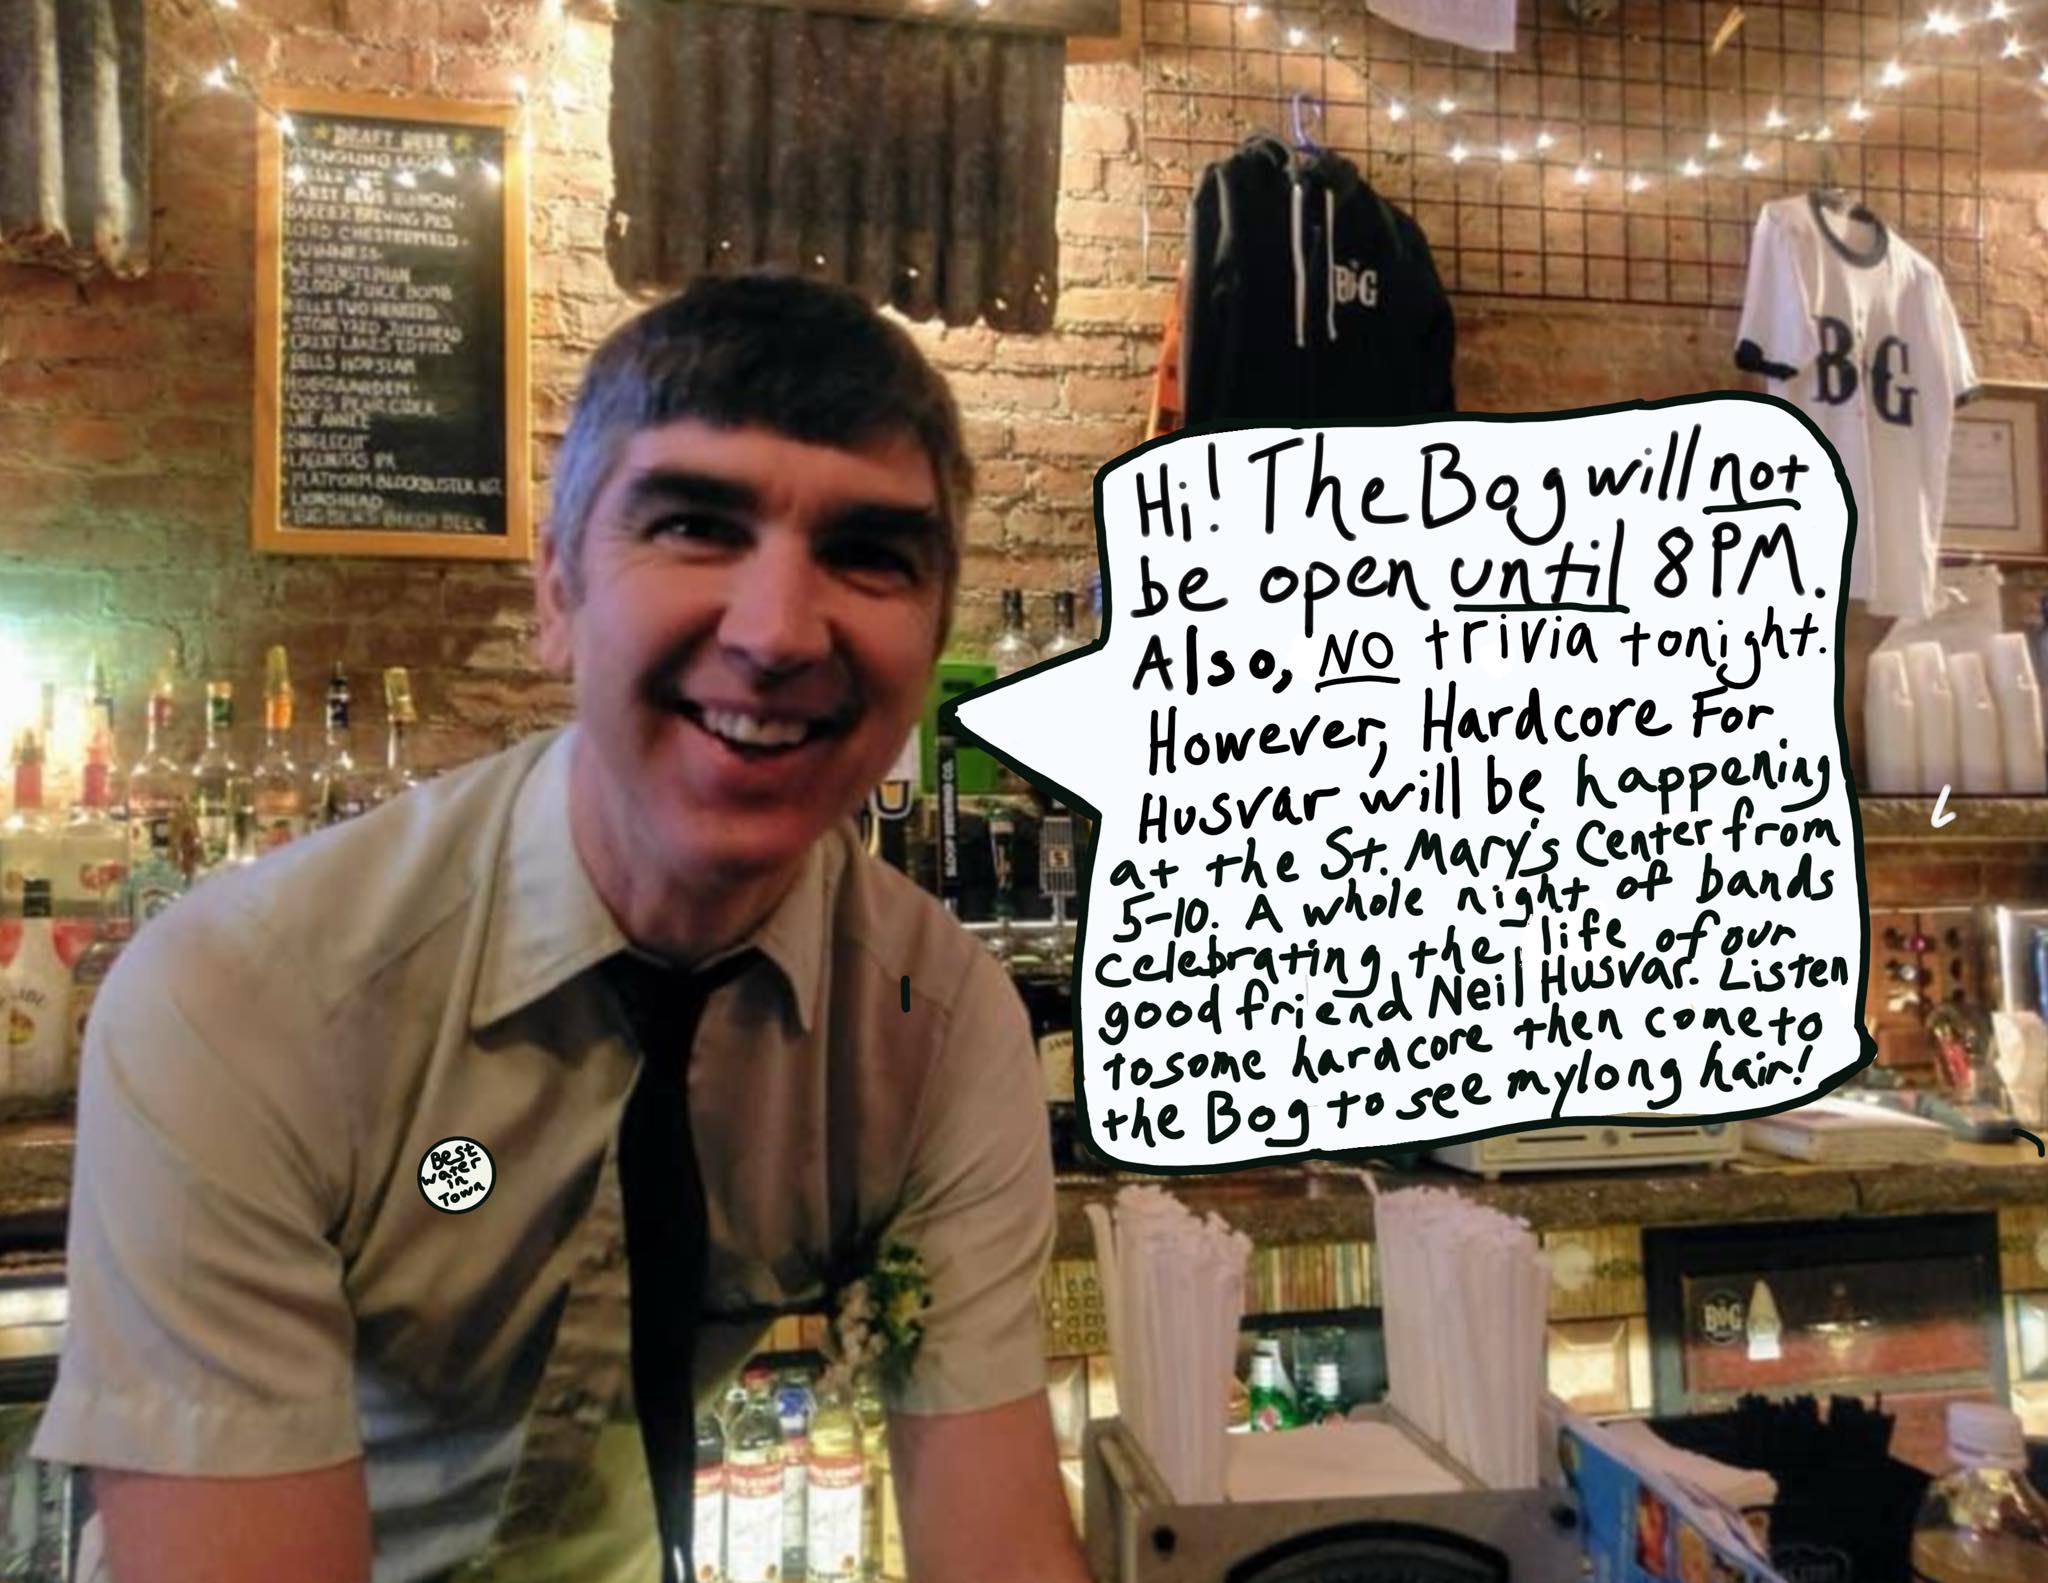 DRAFT BEER
YUENGLING LAGER
PABST BLUE RIBBON
LORD CHESTERFIELD
GUINNESS
WEIHENSTEPHAN
SLOOP JUICE BOMB
BELLS TWO HEARTED
BELLS HOPSLAM
HOEGAARDEN
LAGUNITAS IPA
PLATFORM BLOCKBUSTER
LIONSHEAD
BIRCH BEER
BOG
BOG
Hi! The Bog will not
be open until 8PM.
Also, NO trivia tonight.
However, Hardcore For
Husvar will be happening
at the St. Mary's Center from
5-10. A whole night of bands
celebrating the life of our
good friend Neil Husvar. Listen
to some hardcore then come to
the Bog to see my long hair!
SLOOP BREWING CO.
Best
water
in
Town
BOG